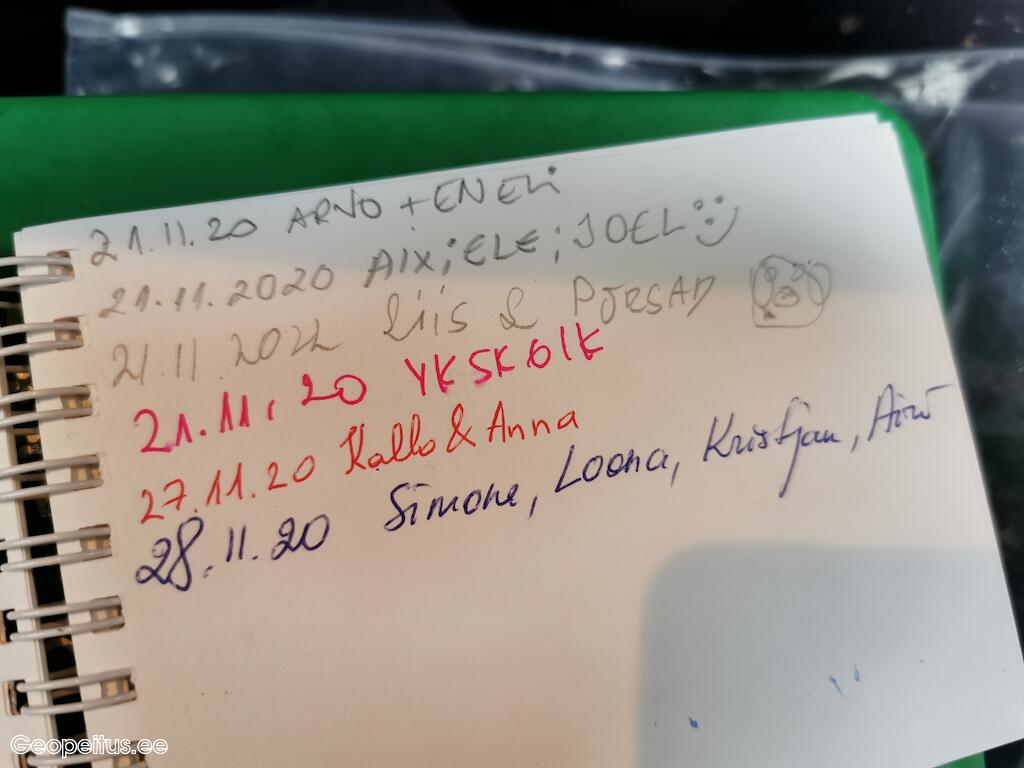 21.11.20 ARNO + ENELI
21.11.2020 AIX; ELE; JOEL
21.11 202L Liis & PÕRSAD
21.11.20 YKSKÕIK
27.11.20 Kallo & Anna
28.11.20 Simone, Loona, Kristjan, Airi
Geopeitus.ee